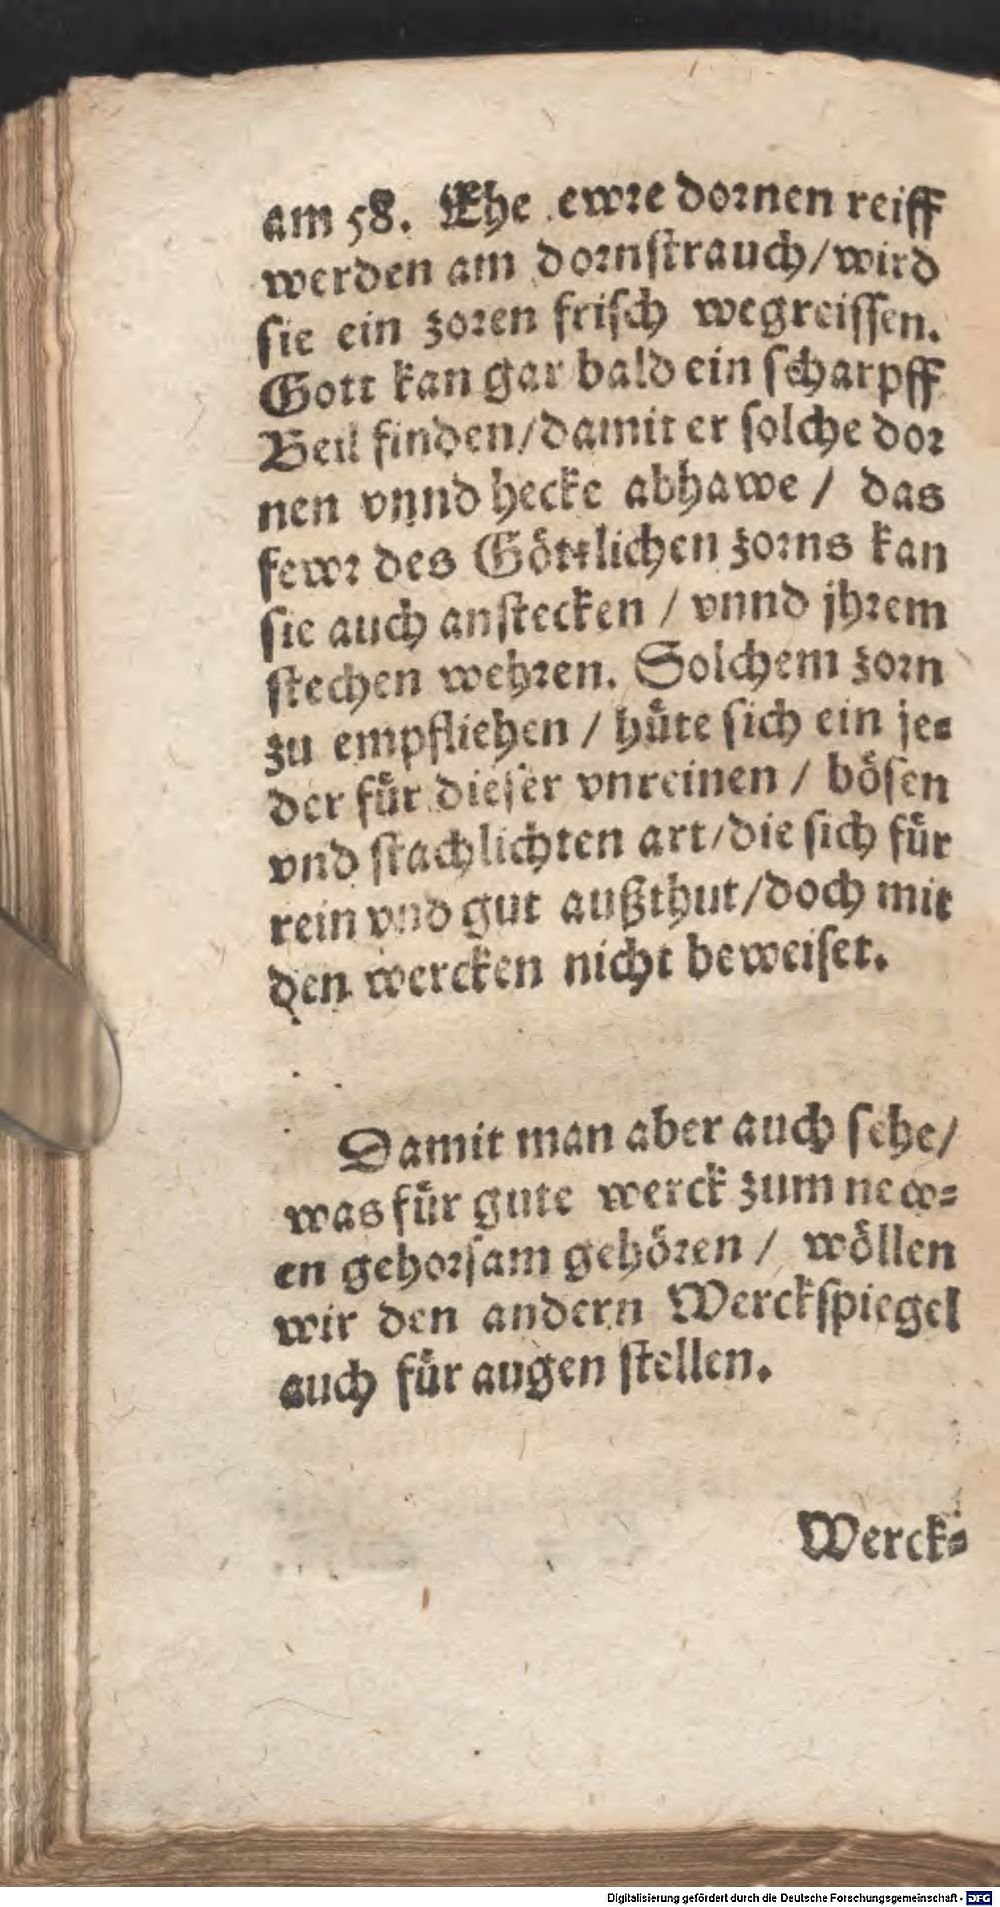 am 58. Ehe ewre dornen reiff
werden am dornstrauch/wird
sie ein zoren frisch wegreissen.
Gott kan gar bald ein scharpff
Beil finden/damit er solche dor
nen vnnd hecke abhawe / das
fewr des Göttlichen zorns kan
sie auch anstecken / vnnd jhrem
stechen wehren. Solchem zorn
zu empfliehen / hüte sich ein je-
der für dieser vnreinen / bösen
vnd stachlichten art/die sich für
rein vnd gut außthut/doch mit
den wercken nicht beweiset.
Damit man aber auch sehe/
was für gute werck zum new-
en gehorsam gehören / wöllen
wir den andern Werckspiegel
auch für augen stellen.
Werck-
Digitalisierung gefördert durch die Deutsche Forschungsgemeinschaft - DFG